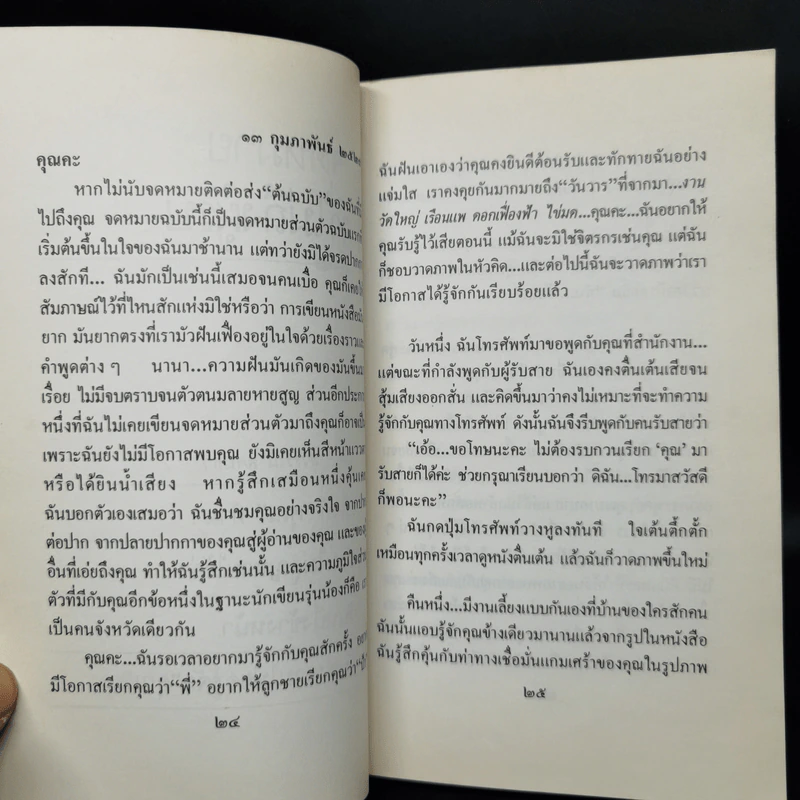 ๑๓ กุมภาพันธ์
คุณคะ
หากไม่นับจดหมายติดต่อส่ง“ต้นฉบับ”ของฉันที่
ไปถึงคุณ จดหมายฉบับนี้ก็เป็นจดหมายส่วนตัวฉบับแรก
เริ่มต้นขึ้นในใจของฉันมาช้านาน แต่ทว่ายังมิได้จรดปาก
ลงสักที... ฉันมักเป็นเช่นนี้เสมอจนคนเบื่อ คุณก็เคย
สัมภาษณ์ไว้ที่ไหนสักแห่งมิใช่หรือว่า การเขียนหนังสือ
ยาก มันยากตรงที่เรามัวฝันเฟื่องอยู่ในใจด้วยเรื่องราว
คำพูดต่าง ๆ นานา...ความฝันมันเกิดของมันขึ้น
เรื่อย ไม่มีจบตราบจนตัวตนมลายหายสูญ ส่วนอีกประ
หนึ่งที่ฉันไม่เคยเขียนจดหมายส่วนตัวมาถึงคุณก็อาจเป็น
เพราะฉันยังไม่มีโอกาสพบคุณ ยังมิเคยเห็นสีหน้าแวว
หรือได้ยินน้ำเสียง หากรู้สึกเสมือนหนึ่งคุ้นเคย
ฉันบอกตัวเองเสมอว่า ฉันชื่นชมคุณอย่างจริงใจ จากปาก
ต่อปาก จากปลายปากกาของคุณสู่ผู้อ่านของคุณ และของ
อื่นที่เอ่ยถึงคุณ ทำให้ฉันรู้สึกเช่นนั้น และความภูมิใจส่วน
ตัวที่มีกับคุณอีกข้อหนึ่งในฐานะนักเขียนรุ่นน้องก็คือ
เป็นคนจังหวัดเดียวกัน
คุณคะ...ฉันรอเวลาอยากมารู้จักกับคุณสักครั้ง
มีโอกาสเรียกคุณว่า“พี่” อยากให้ลูกชายเรียกคุณว่า
๒๔
ฉันฝันเอาเองว่าคุณคงยินดีต้อนรับและทักทายฉันอย่าง
แจ่มใส เราคงคุยกันมากมายถึง“วันวาร”ที่จากมา...งาน
วัดใหญ่ เรือนแพ ดอกเฟื่องฟ้า ไข่มด...คุณคะ...ฉันอยากให้
คุณรับรู้ไว้เสียตอนนี้ แม้ฉันจะมิใช่จิตรกรเช่นคุณ แต่ฉัน
ก็ชอบวาดภาพในหัวคิด...และต่อไปนี้ฉันจะวาดภาพว่าเรา
มีโอกาสได้รู้จักกันเรียบร้อยแล้ว
วันหนึ่ง ฉันโทรศัพท์มาขอพูดกับคุณที่สำนักงาน...
แต่ขณะที่กำลังพูดกับผู้รับสาย ฉันเองคงตื่นเต้นเสียจน
สุ้มเสียงออกสั่น และคิดขึ้นมาว่าคงไม่เหมาะที่จะทำความ
รู้จักกับคุณทางโทรศัพท์ ดังนั้นฉันจึงรีบพูดกับคนรับสายว่า
“เอ้อ...ขอโทษนะคะ ไม่ต้องรบกวนเรียก ‘คุณ’ มา
รับสายก็ได้ค่ะ ช่วยกรุณาเรียนบอกว่า ดิฉัน...โทรมาสวัสดี
ก็พอนะคะ”
ฉันกดปุ่มโทรศัพท์วางหูลงทันที ใจเต้นตึ้กตั้ก
เหมือนทุกครั้งเวลาดูหนังตื่นเต้น แล้วฉันก็วาดภาพขึ้นใหม่
คืนหนึ่ง...มีงานเลี้ยงแบบกันเองที่บ้านของใครสักคน
ฉันนั้นแอบรู้จักคุณข้างเดียวมานานแล้วจากรูปในหนังสือ
ฉันรู้สึกคุ้นกับท่าทางเชื่อมั่นแกมเศร้าของคุณในรูปภาพ
๒๕